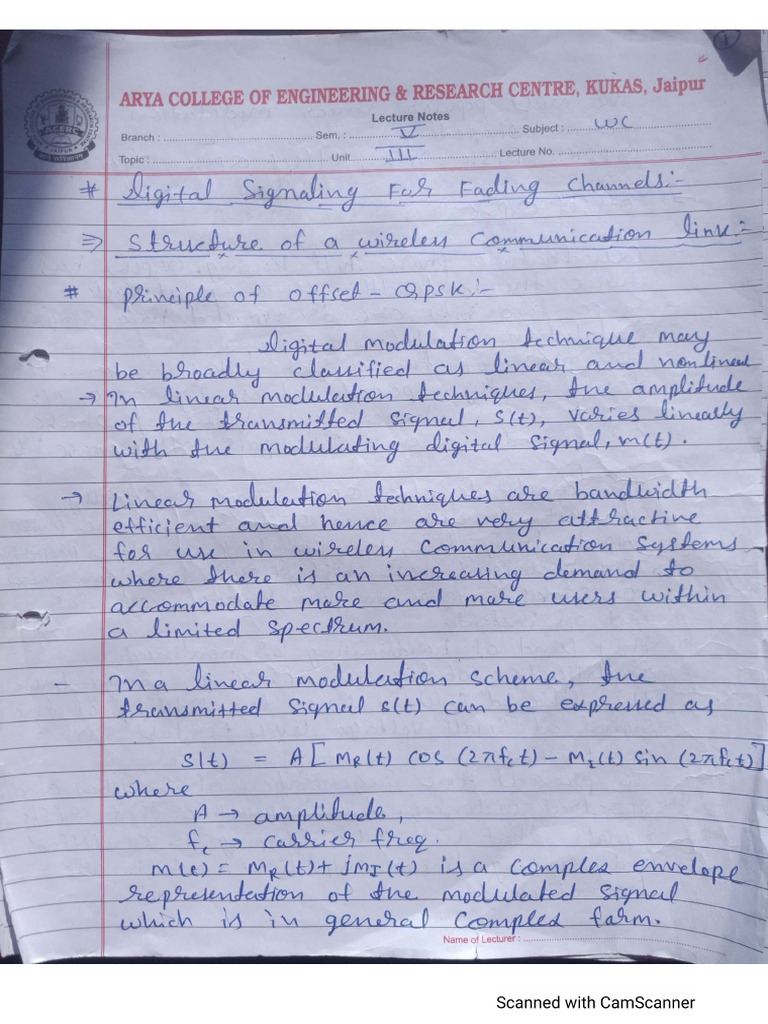 1
ARYA COLLEGE OF ENGINEERING & RESEARCH CENTRE, KUKAS, Jaipur
Lecture Notes
Branch : Sem. : V Subject : WC
Topic : Unit III Lecture No.
# Digital Signaling For Fading Channels:-
⇒ Structure of a wireless Communication link:-
# principle of offset - QPSK:-
Digital modulation technique may
be broadly classified as linear and nonlinear
→ In linear modulation techniques, the amplitude
of the transmitted signal, S(t), varies linearly
with the modulating digital Signal, m(t).
→ Linear modulation techniques are bandwidth
efficient and hence are very attractive
for use in wireless Communication systems
where there is an increasing demand to
accommodate more and more users within
a limited spectrum.
- In a linear modulation scheme, the
transmitted signal s(t) can be expressed as
S(t) = A[mR(t) cos (2πfct) - mI(t) sin (2πfct)]
where
A → amplitude,
fc → carrier freq.
m(t) = mR(t) + jmI(t) is a complex envelope
representation of the modulated signal
which is in general complex form.
Name of Lecturer :
Scanned with CamScanner